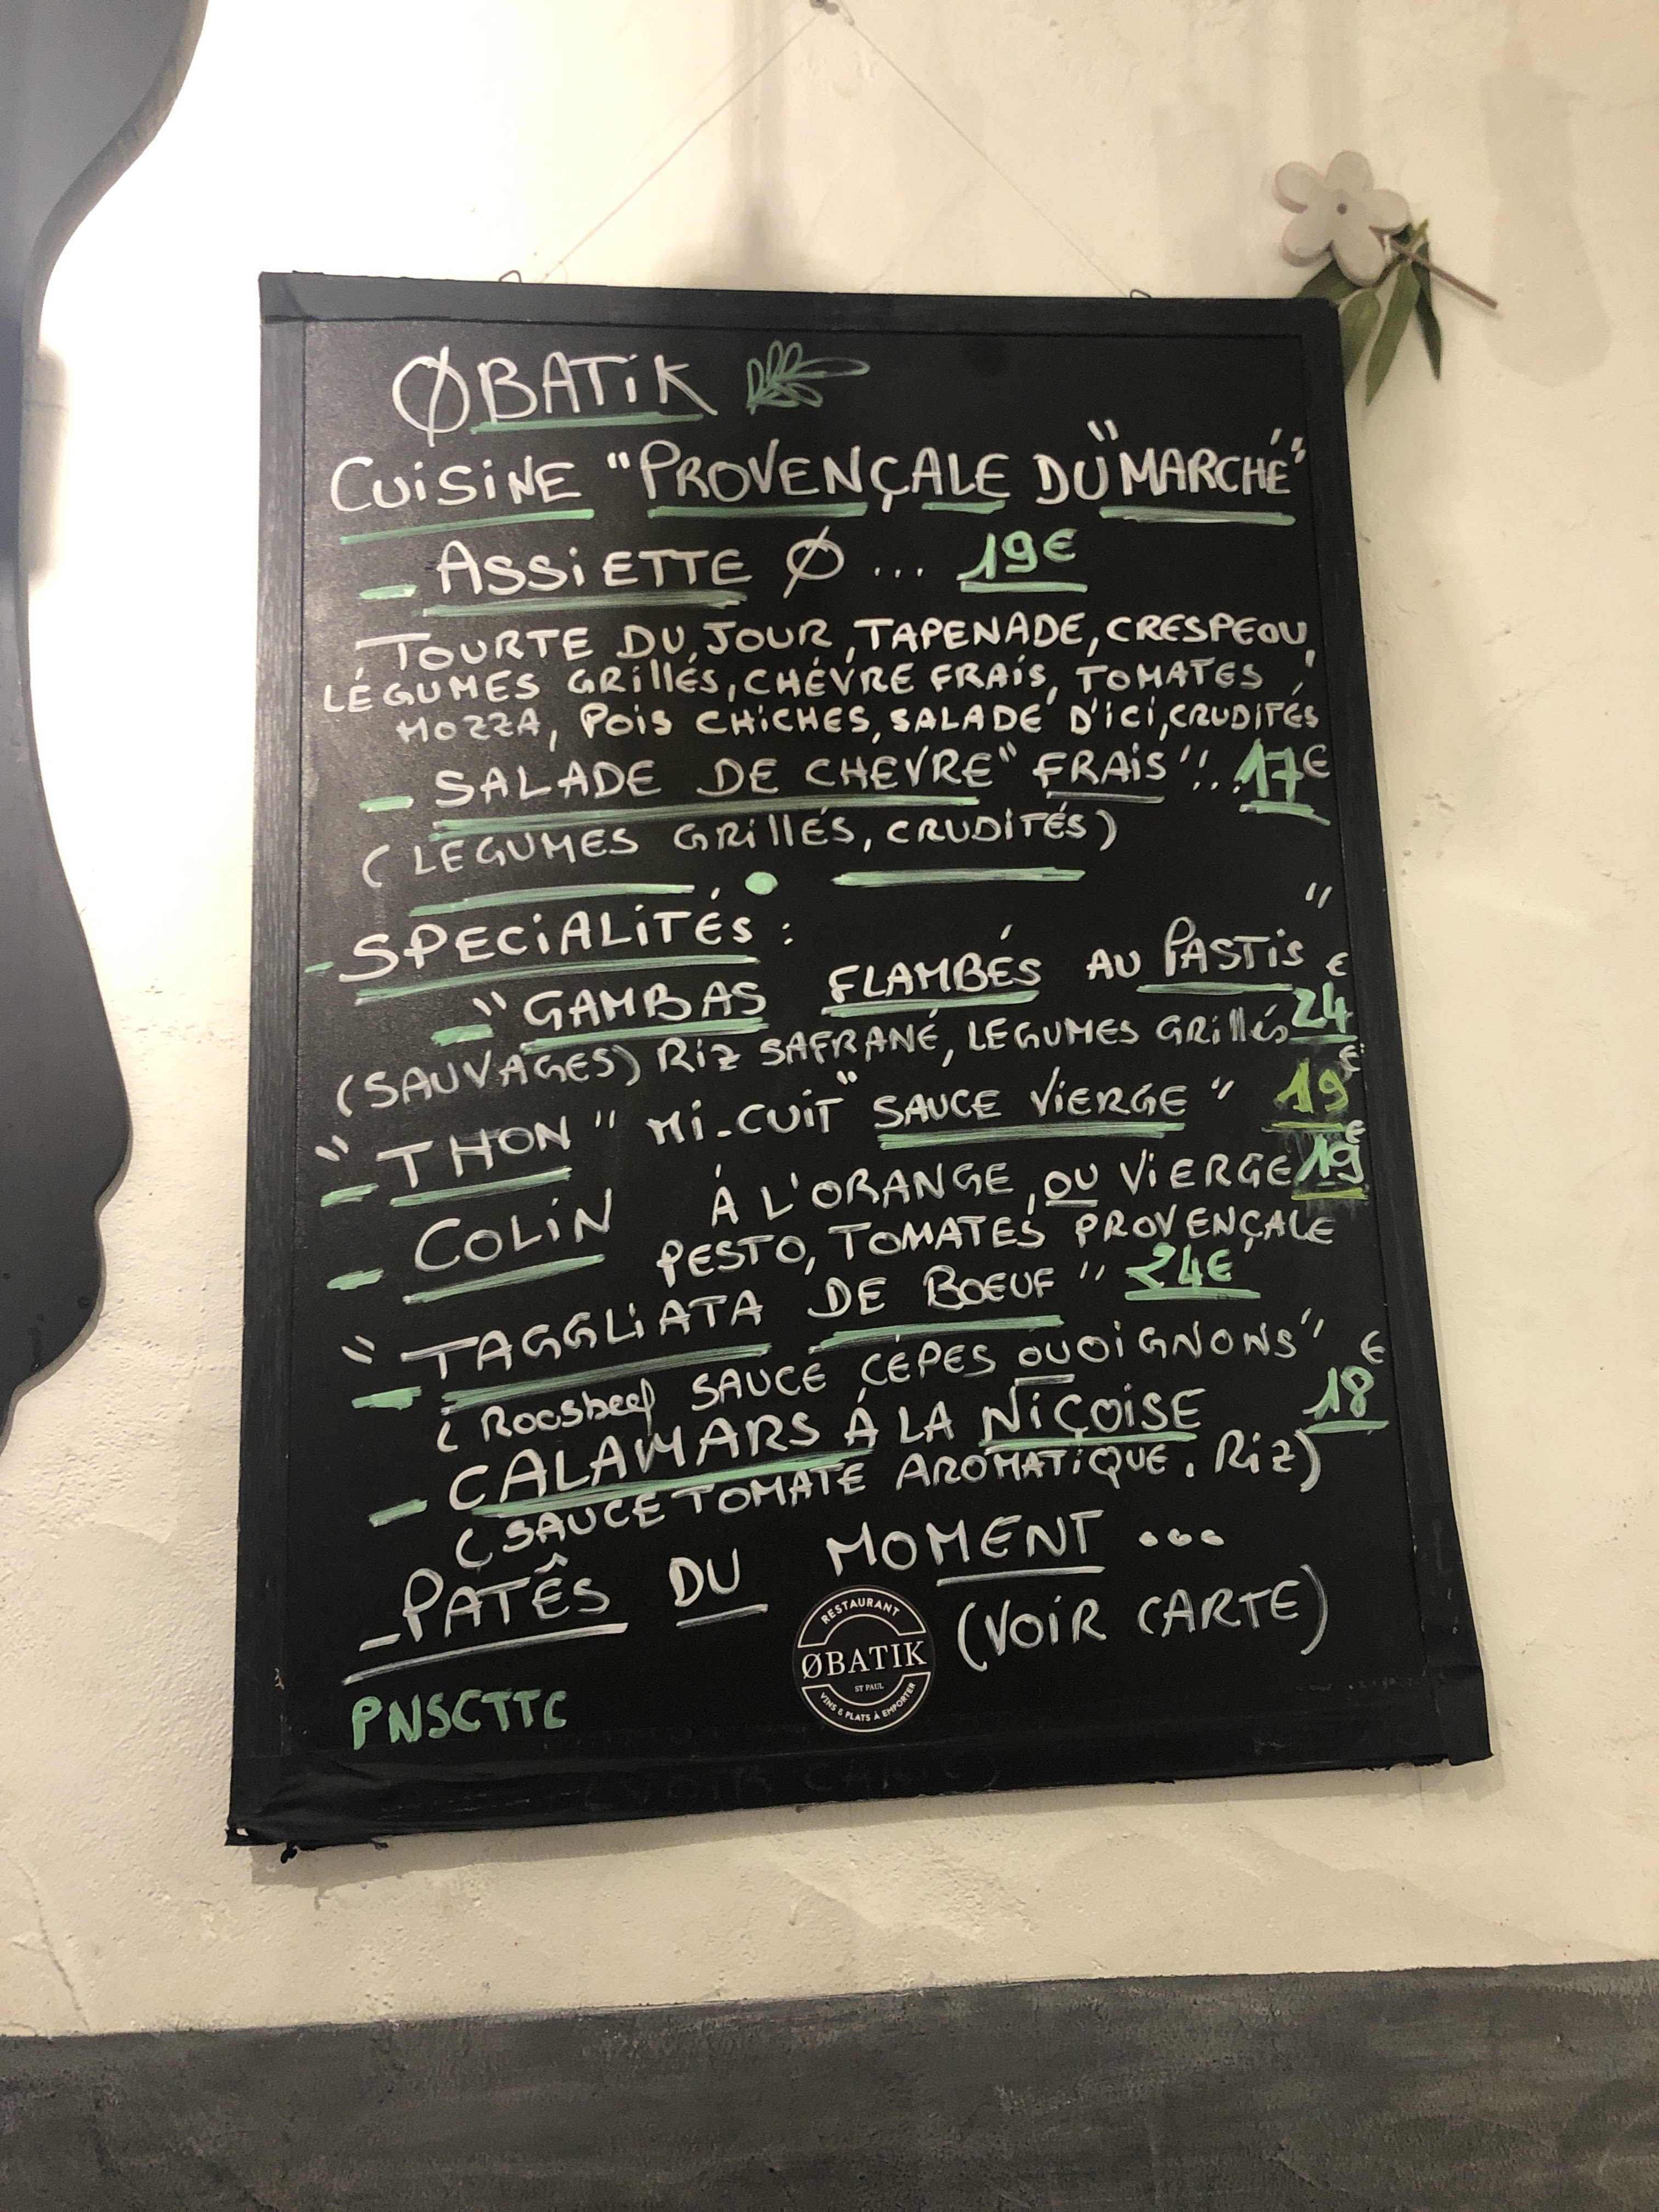 ØBATiK
CUiSiNE "PROVENÇALE DU "MARCHÉ"
- ASSiETTE Ø ... 19€
TOURTE DU JOUR, TAPENADE, CRESPEOU,
LÉGUMES GRillÉS, CHÉVRE FRAiS, TOMATES,
MOZZA, POiS CHiCHES, SALADE D'iCi, CRUDiTÉS
- SALADE DE CHEVRE "FRAiS"... 17€
(LEGUMES GRillÉS, CRUDiTÉS)
- SPECiALiTÉS :
- "GAMBAS FLAMBÉS AU PASTiS" 24€
(SAUVAGES) RiZ SAFRANÉ, LEGUMES GRillÉS
- "THON" Mi-CUiT "SAUCE ViERGE" 19€
- COLiN Á L'ORANGE, OU ViERGE 19€
PESTO, TOMATES PROVENÇALE
- "TAGGLiATA DE BOEUF" 24€
(Roosbeef SAUCE CÉPES OU OiGNONS"
- CALAMARS Á LA NiÇOiSE 18€
(SAUCE TOMATE AROMATiQUE, RiZ)
- PATÊS DU MOMENT ...
(VOiR CARTE)
RESTAURANT
ØBATIK
ST PAUL
VINS & PLATS À EMPORTER
PNSCTTC
(VOIR CARTE)